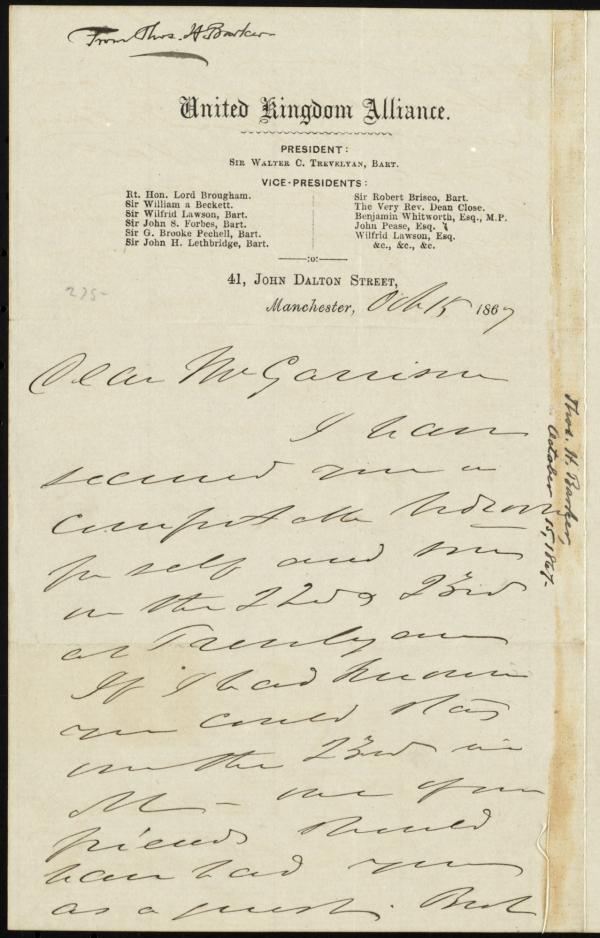 From Thos. H. Barker
United Kingdom Alliance.
PRESIDENT:
SIR WALTER C. TREVELYAN, BART.
VICE-PRESIDENTS:
Rt. Hon. Lord Brougham.
Sir William a Beckett.
Sir Wilfrid Lawson, Bart.
Sir John S. Forbes, Bart.
Sir G. Brooke Pechell, Bart.
Sir John H. Lethbridge, Bart.
Sir Robert Brisco, Bart.
The Very Rev. Dean Close.
Benjamin Whitworth, Esq., M.P.
John Pease, Esq.
Wilfrid Lawson, Esq.
&c., &c., &c.
:o:
41, JOHN DALTON STREET,
275-
Manchester, Oct 15 1867
Dear Mr Garrison
I have
secured you a
comfortable bedroom
for self and son
on the 22d & 23rd
at Trevelyan
If I had known
you could stay
on the 23rd in
M - one of our
friends should
have had you
as a guest. But
Thos. H. Barker,
October 15, 1867.